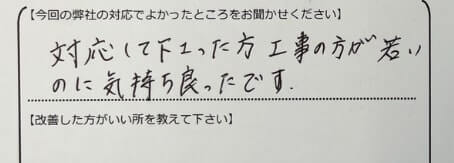 【今回の弊社の対応でよかったところをお聞かせください】
対応して下さった方 工事の方が若い
のに気持ち良ったです.
【改善した方がいい所を教えて下さい】